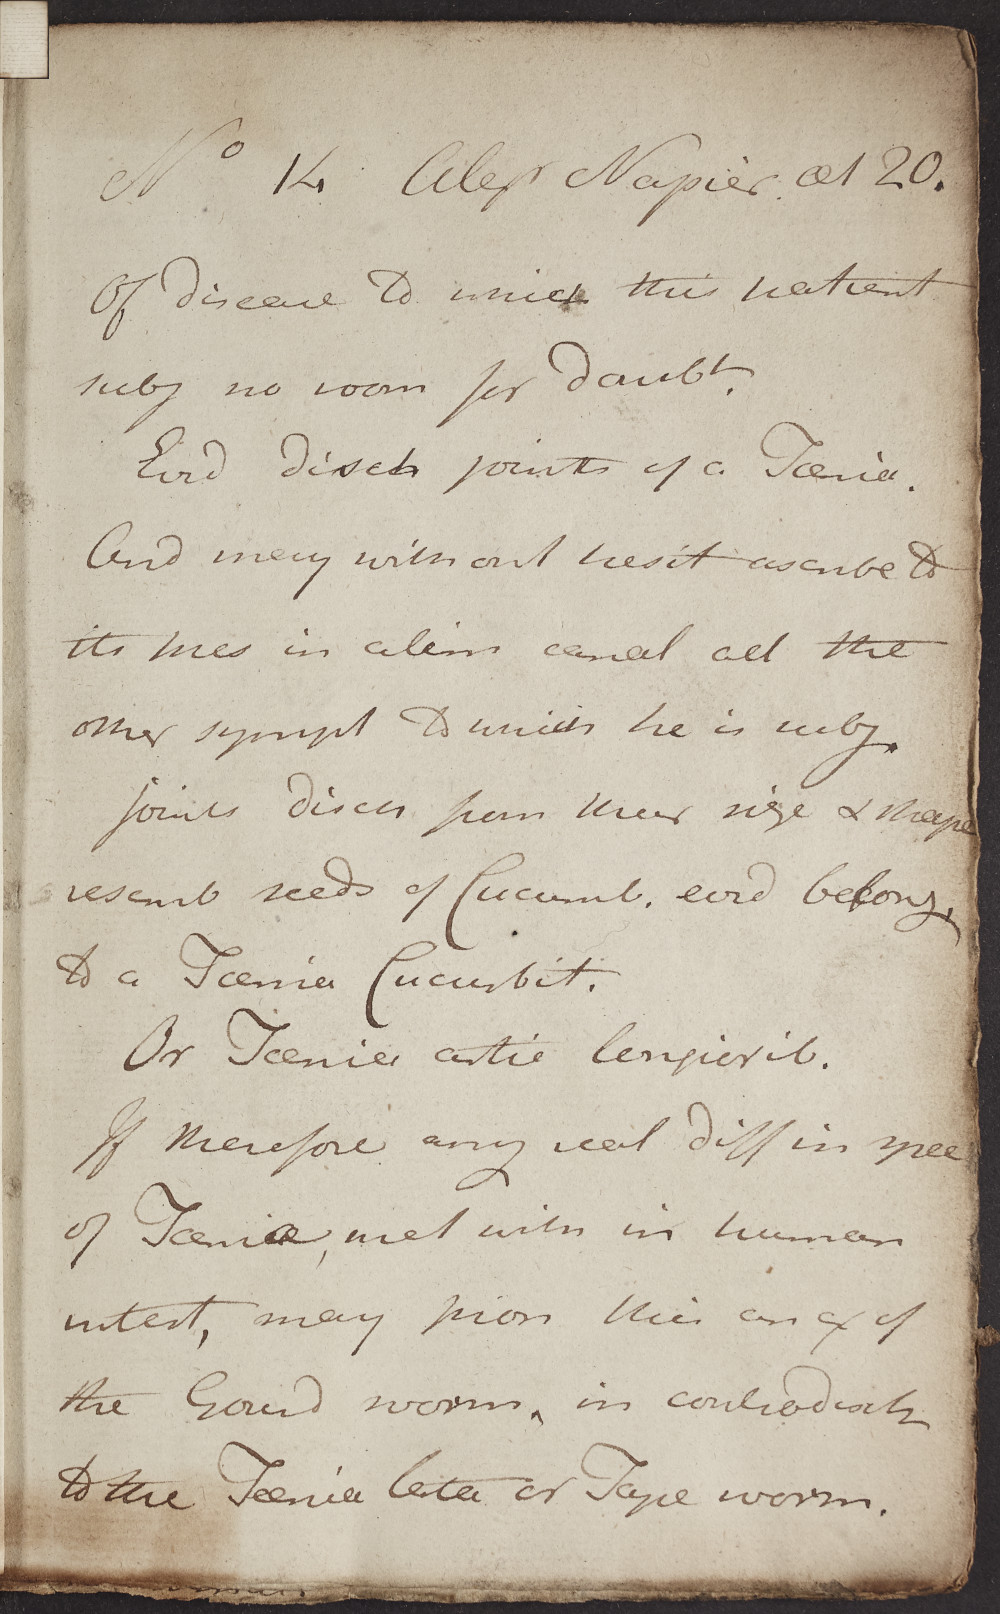 No 14 Alexr Napier. æt 20.
Of disease to which this patient
subj no room for doubt.
Evid disch joints of a Tænia.
And may without hesit ascribe to
its pres in alim canal all the
other sympt to which he is subj.
joints disch from their size & shape
resemb seeds of Cucumb. evid belong,
to a Tænia Cucurbit.
Or Tænia ostic
If therefore any real diff in spec
of Tæniæ, met with in human
intest, may pron this an ex of
the Gourd worm, in contradisti
to the Tænia lata or Tape worm.